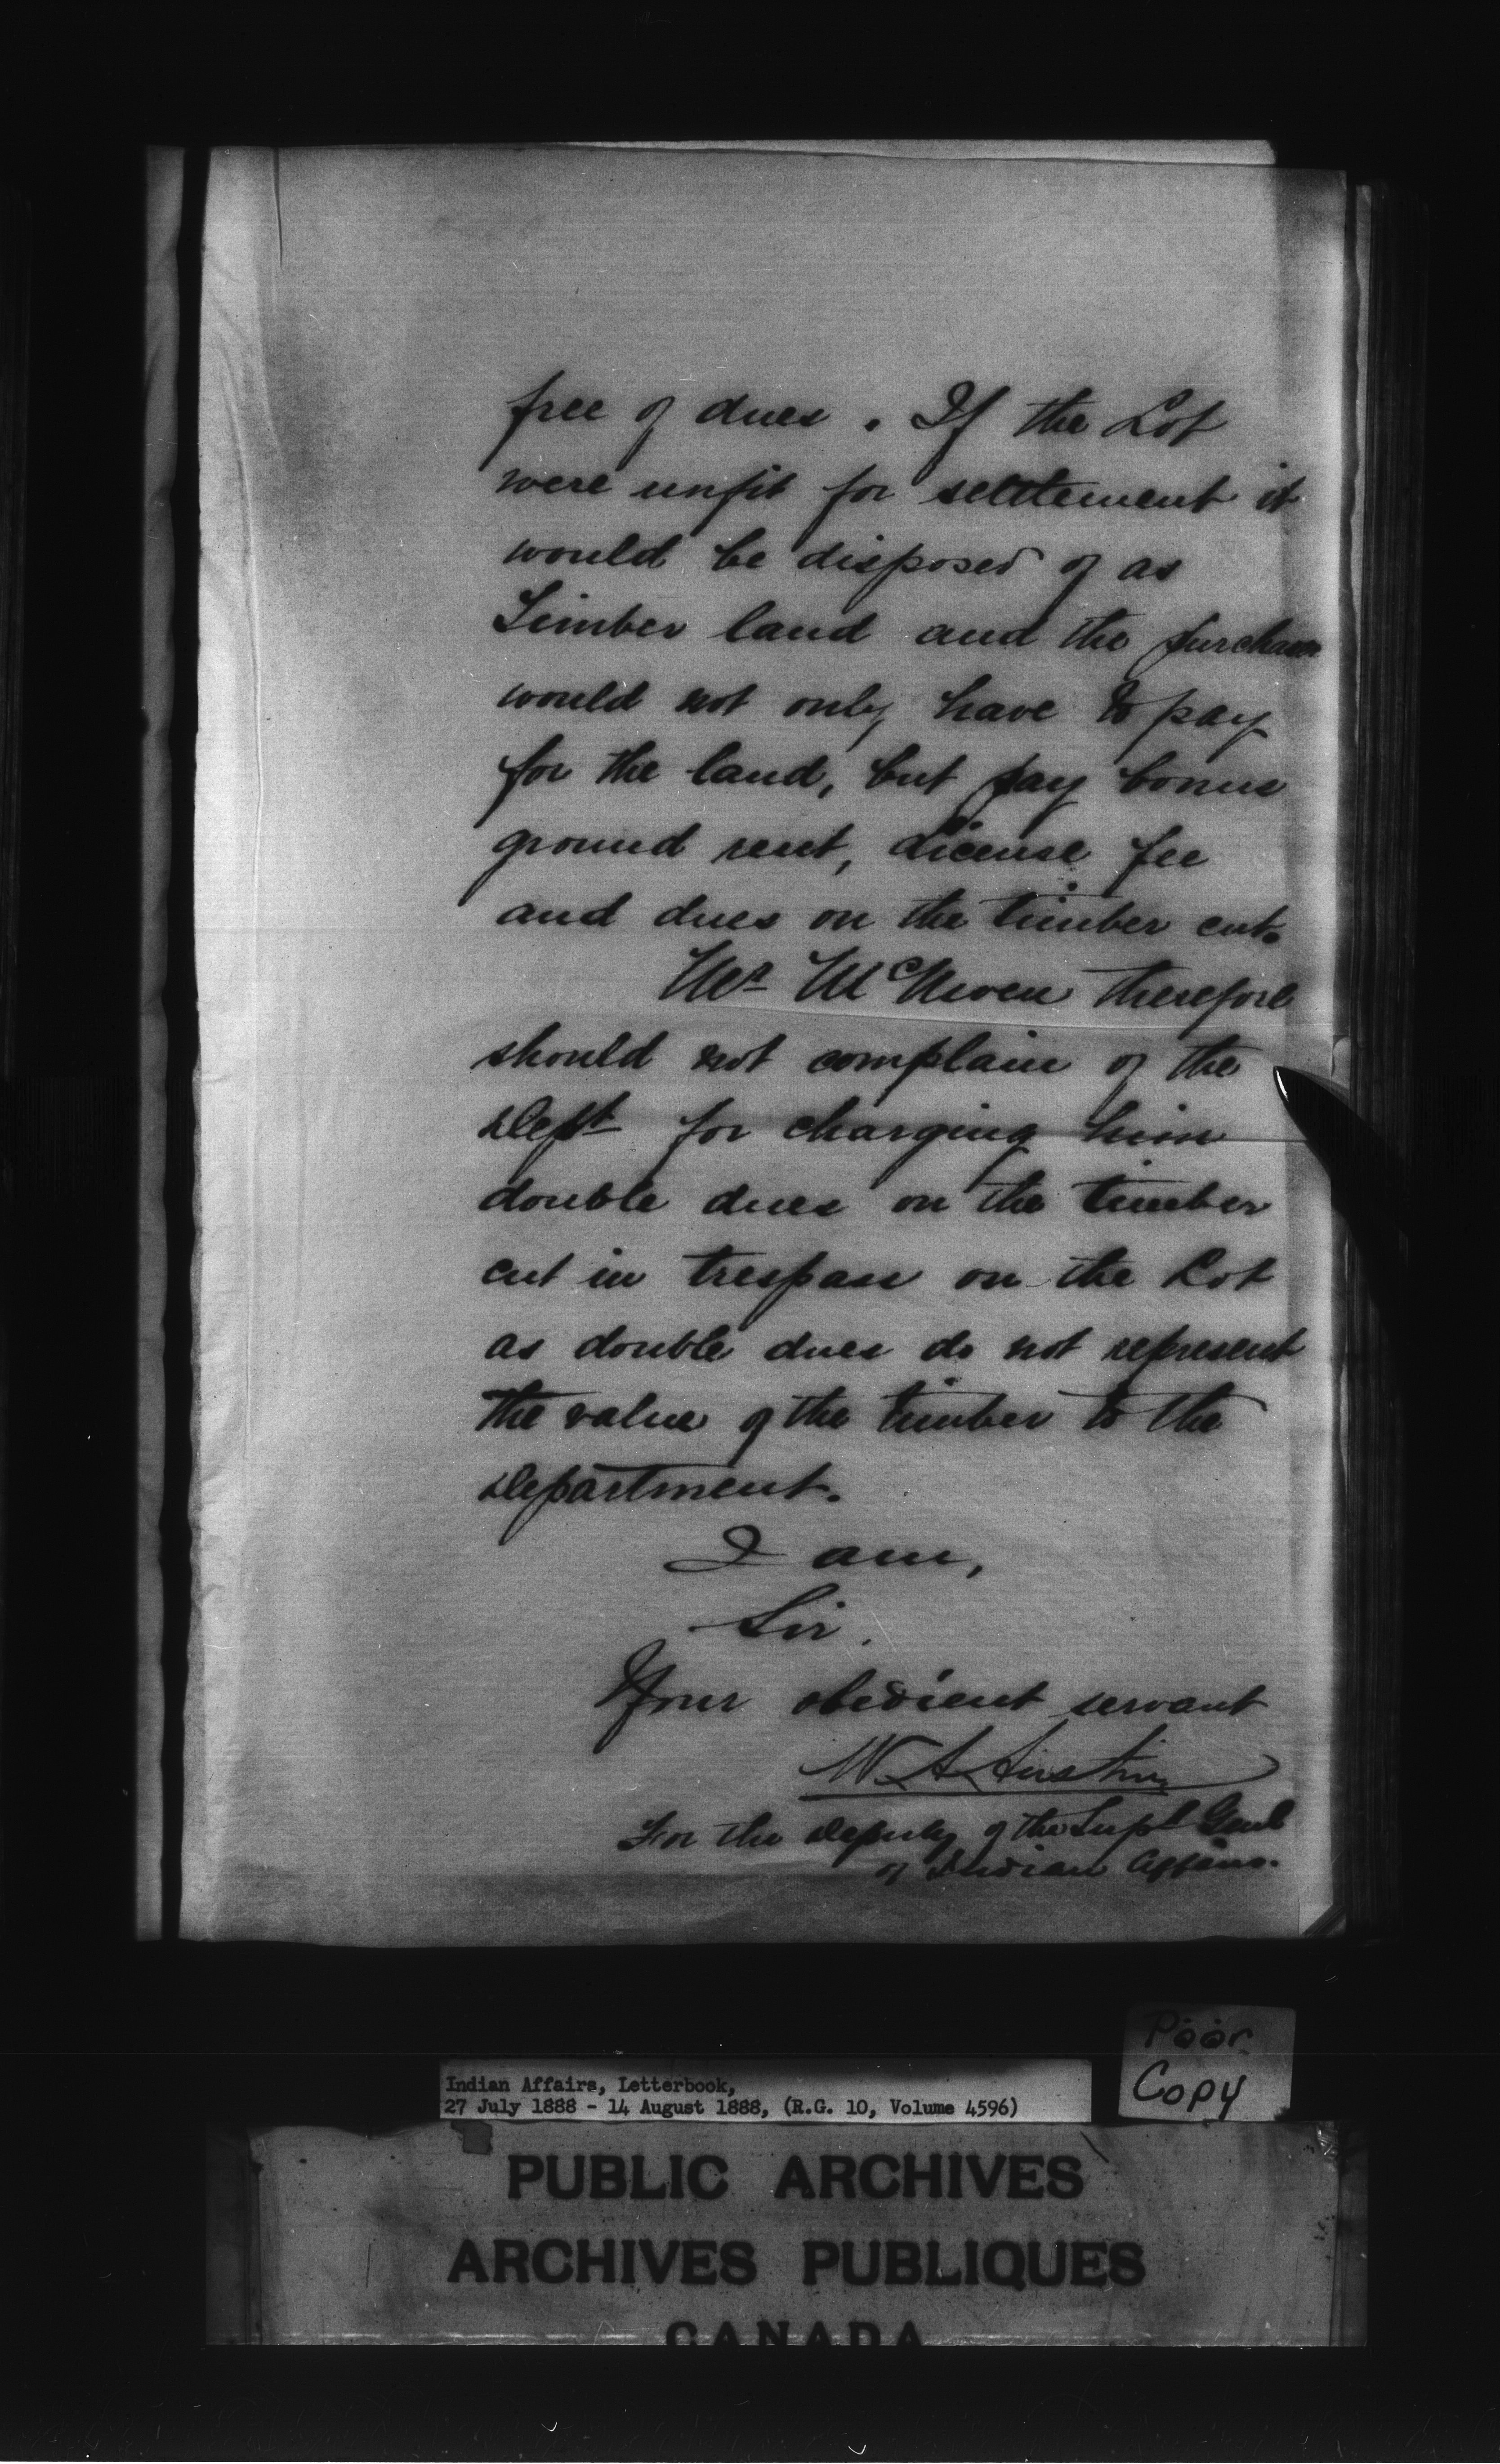 free of dues. If the Lot
were unfit for settlement it
would be disposed of as
Timber land and the purchaser
would not only have to pay
for the land, but pay bonus
ground rent, license fee
and dues on the timber cut.
Mr McNiven therefore
should not complain of the
Dept for charging him
double dues on the timber
cut in trespass on the Lot
as double dues do not represent
the value of the timber to the
Department.
I am,
Sir.
Your obedient servant
W A Austin
For the Deputy of the Supt Genl
of Indian Affairs.
Poor
Copy
Indian Affairs, Letterbook,
27 July 1888 - 14 August 1888, (R.G. 10, Volume 4596)
PUBLIC ARCHIVES
ARCHIVES PUBLIQUES
CANADA